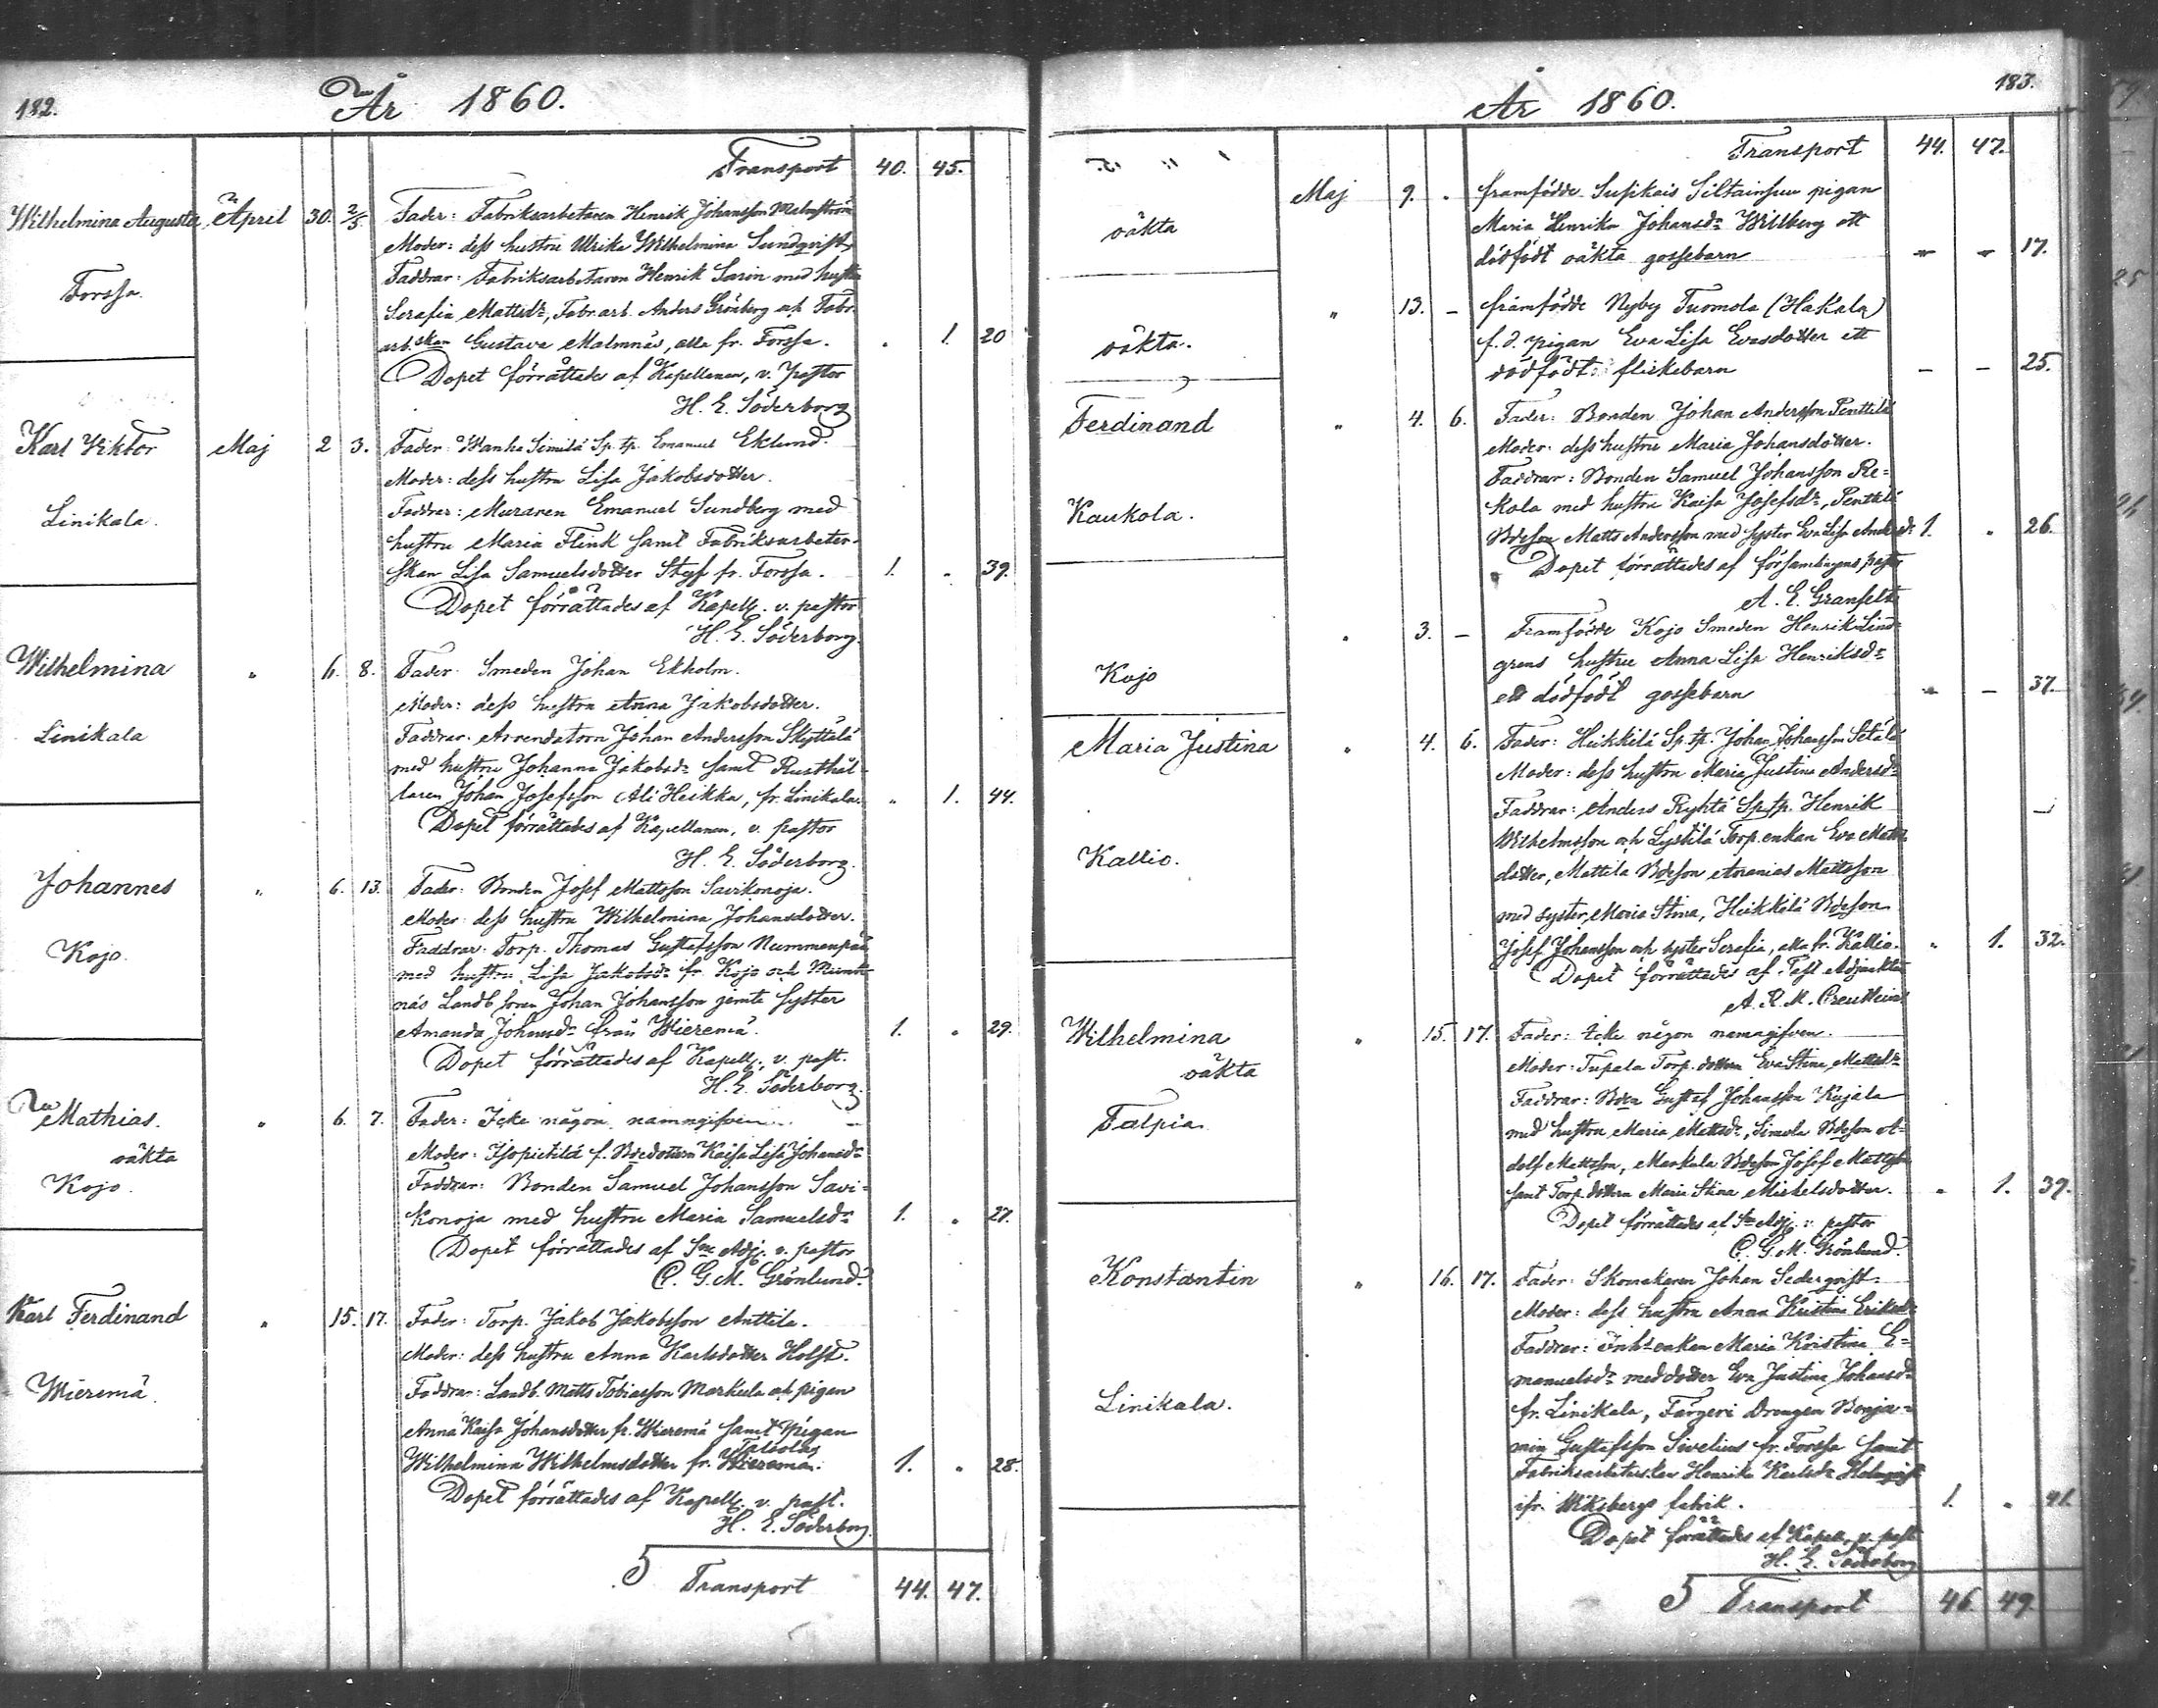 182.
År 1860.
Transport 40. 45.
Wilhelmina Augusta April 30. 2/5 Fader: Fabriksarbetaren Henrik Johansson Malmström
Moder: dess hustru Ulrika Wilhelmina Sundqvist
Forssa. Faddrar: Fabriksarbetaren Henrik Sarin med hustru
Serafia Mattsdr, Fabr.arb. Anders Grönberg och Fabr.
arb.skan Gustava Malmnäs, alla fr. Forssa. " 1. 20
Dopet förrättades af Kapellanen, v. pastor
H. E. Söderborg
Karl Viktor Maj 2 3. Fader: Wanha Similä Sp. tp. Emanuel Eklund.
Moder: dess hustru Lisa Jakobsdotter.
Linikala. Faddrar: Muraren Emanuel Sundberg med
hustru Maria Flink samt Fabriksarbeter-
skan Lisa Samuelsdotter Styf fr. Forssa. 1. " 39.
Dopet förrättades af Kapell. v. pastor
H. E. Söderborg.
Wilhelmina " 6. 8. Fader: Smeden Johan Ekholm.
Moder: dess hustru Anna Jakobsdotter.
Linikala Faddrar: Arrendatorn Johan Andersson Skyttälä
med hustru Johanna Jakobsdr samt Rusthål-
laren Johan Josefsson Ali Heikka, fr. Linikala. " 1. 44.
Dopet förrättades af Kapellanen, v. pastor
H. E. Söderborg.
Johannes " 6. 13. Fader: Bonden Josef Mattsson Savikonoja.
Moder: dess hustru Wilhelmina Johansdotter.
Kojo. Faddrar: Torp. Thomas Gustafsson Nummenpää
med hustru Lisa Jakobsdr fr. Kojo och
Landb.sonen Johan Johansson jemte syster
Amanda Johansdr från Wieremä. 1. " 29.
Dopet förrättades af Kapell. v. past.
H. E. Söderborg.
Mathias. " 6. 7. Fader: Icke någon namngifven.
oäkta Moder: f. Bdedottern Kaisa Lisa Johansdr
Kojo. Faddrar: Bonden Samuel Johansson Savi-
konoja med hustru Maria Samuelsdr 1. " 27.
Dopet förrättades af Sne Adj. v. pastor
C. G. M. Grönlund.
Karl Ferdinand " 15. 17. Fader: Torp. Jakob Jakobsson Anttila.
Moder: dess hustru Anna Karlsdotter Holst.
Wieremä. Faddrar: Landb. Matts Tobiasson Markula och pigan
Anna Kaisa Johansdotter fr. Wieremä samt pigan
Talsola
Wilhelmina Wilhelmsdotter fr. Wieremä. 1. " 28.
Dopet förrättades af Kapell. v. past.
H. E. Söderborg.
5 Transport 44. 47.
183.
År 1860.
Transport 44. 47.
Maj 9. " framfödde Susikais Siltainsuu pigan
oäkta Maria Henrika Johansdr Willberg ett
dödfödt oäkta gossebarn – – 17.
" 13. – framfödde Nyby Tuomola (Hakala)
oäkta. f. d. pigan Eva Lisa Evasdotter ett
dödfödt flickebarn – – 25.
Ferdinand " 4. 6. Fader: Bonden Johan Andersson Penttilä
Moder: dess hustru Maria Johansdotter.
Faddrar: Bonden Samuel Johansson Re-
Kaukola. kola med hustru Kaisa Josefsdr, Penttilä
Bdeson Matts Andersson med syster Eva Lisa Andersdr 1. " 26.
Dopet förrättades af församlingens pastor
A. E. Granfelt
" 3. – Framfödde Kojo Smeden Henrik Lind-
Kojo grens hustru Anna Lisa Henriksdr
ett dödfödt gossebarn – – 37.
Maria Justina " 4. 6. Fader: Heikkilä Sp. tp. Johan Johansson Setälä
Moder: dess hustru Maria Justina Andersdr
Faddrar: Anders Ryhtä Sp. tp. Henrik
Kallio. Wilhelmsson och Lystilä Torp.enkan Eva Matts-
dotter, Mattila Bdeson Ananias Mattsson
med syster Maria Stina, Heikkilä Bdeson
Josef Johansson och syster Serafia, alla fr. Kallio. " 1. 32.
Dopet förrättades af Past. Adjunkten
A. R. M. Creutlein
Wilhelmina " 15. 17. Fader: Icke någon namngifven.
oäkta Moder: Tupala Torp. dottern Eva Stina Mattsdr
Talpia Faddrar: Bden Gustaf Johansson Kujala
med hustru Maria Mattsdr, Simola Bdeson A-
dolf Mattsson, Markula Bdeson Josef Mattsson
samt Torp.dottern Maria Stina Mickelsdotter. " 1. 39.
Dopet förrättades af Sne Adj. v. pastor
C. G. M. Grönlund.
Konstantin " 16. 17. Fader: Skomakaren Johan Sederqvist.
Moder: dess hustru Anna Kristina Eriksdr
Faddrar: Inh.enkan Maria Kristina E-
manuelsdr med dotter Eva Justina Johansdr
Linikala. fr. Linikala, Färgeri Drengen Benja-
min Gustafsson Sivelius fr. Forssa samt
Fabriksarbeterskan Henrika Karlsdr Holmqvist
ifr. Wiksbergs fabrik. 1. " 41.
Dopet förrättades af Kapell. v. past.
H. E. Söderborg
5 Transport 46 49.